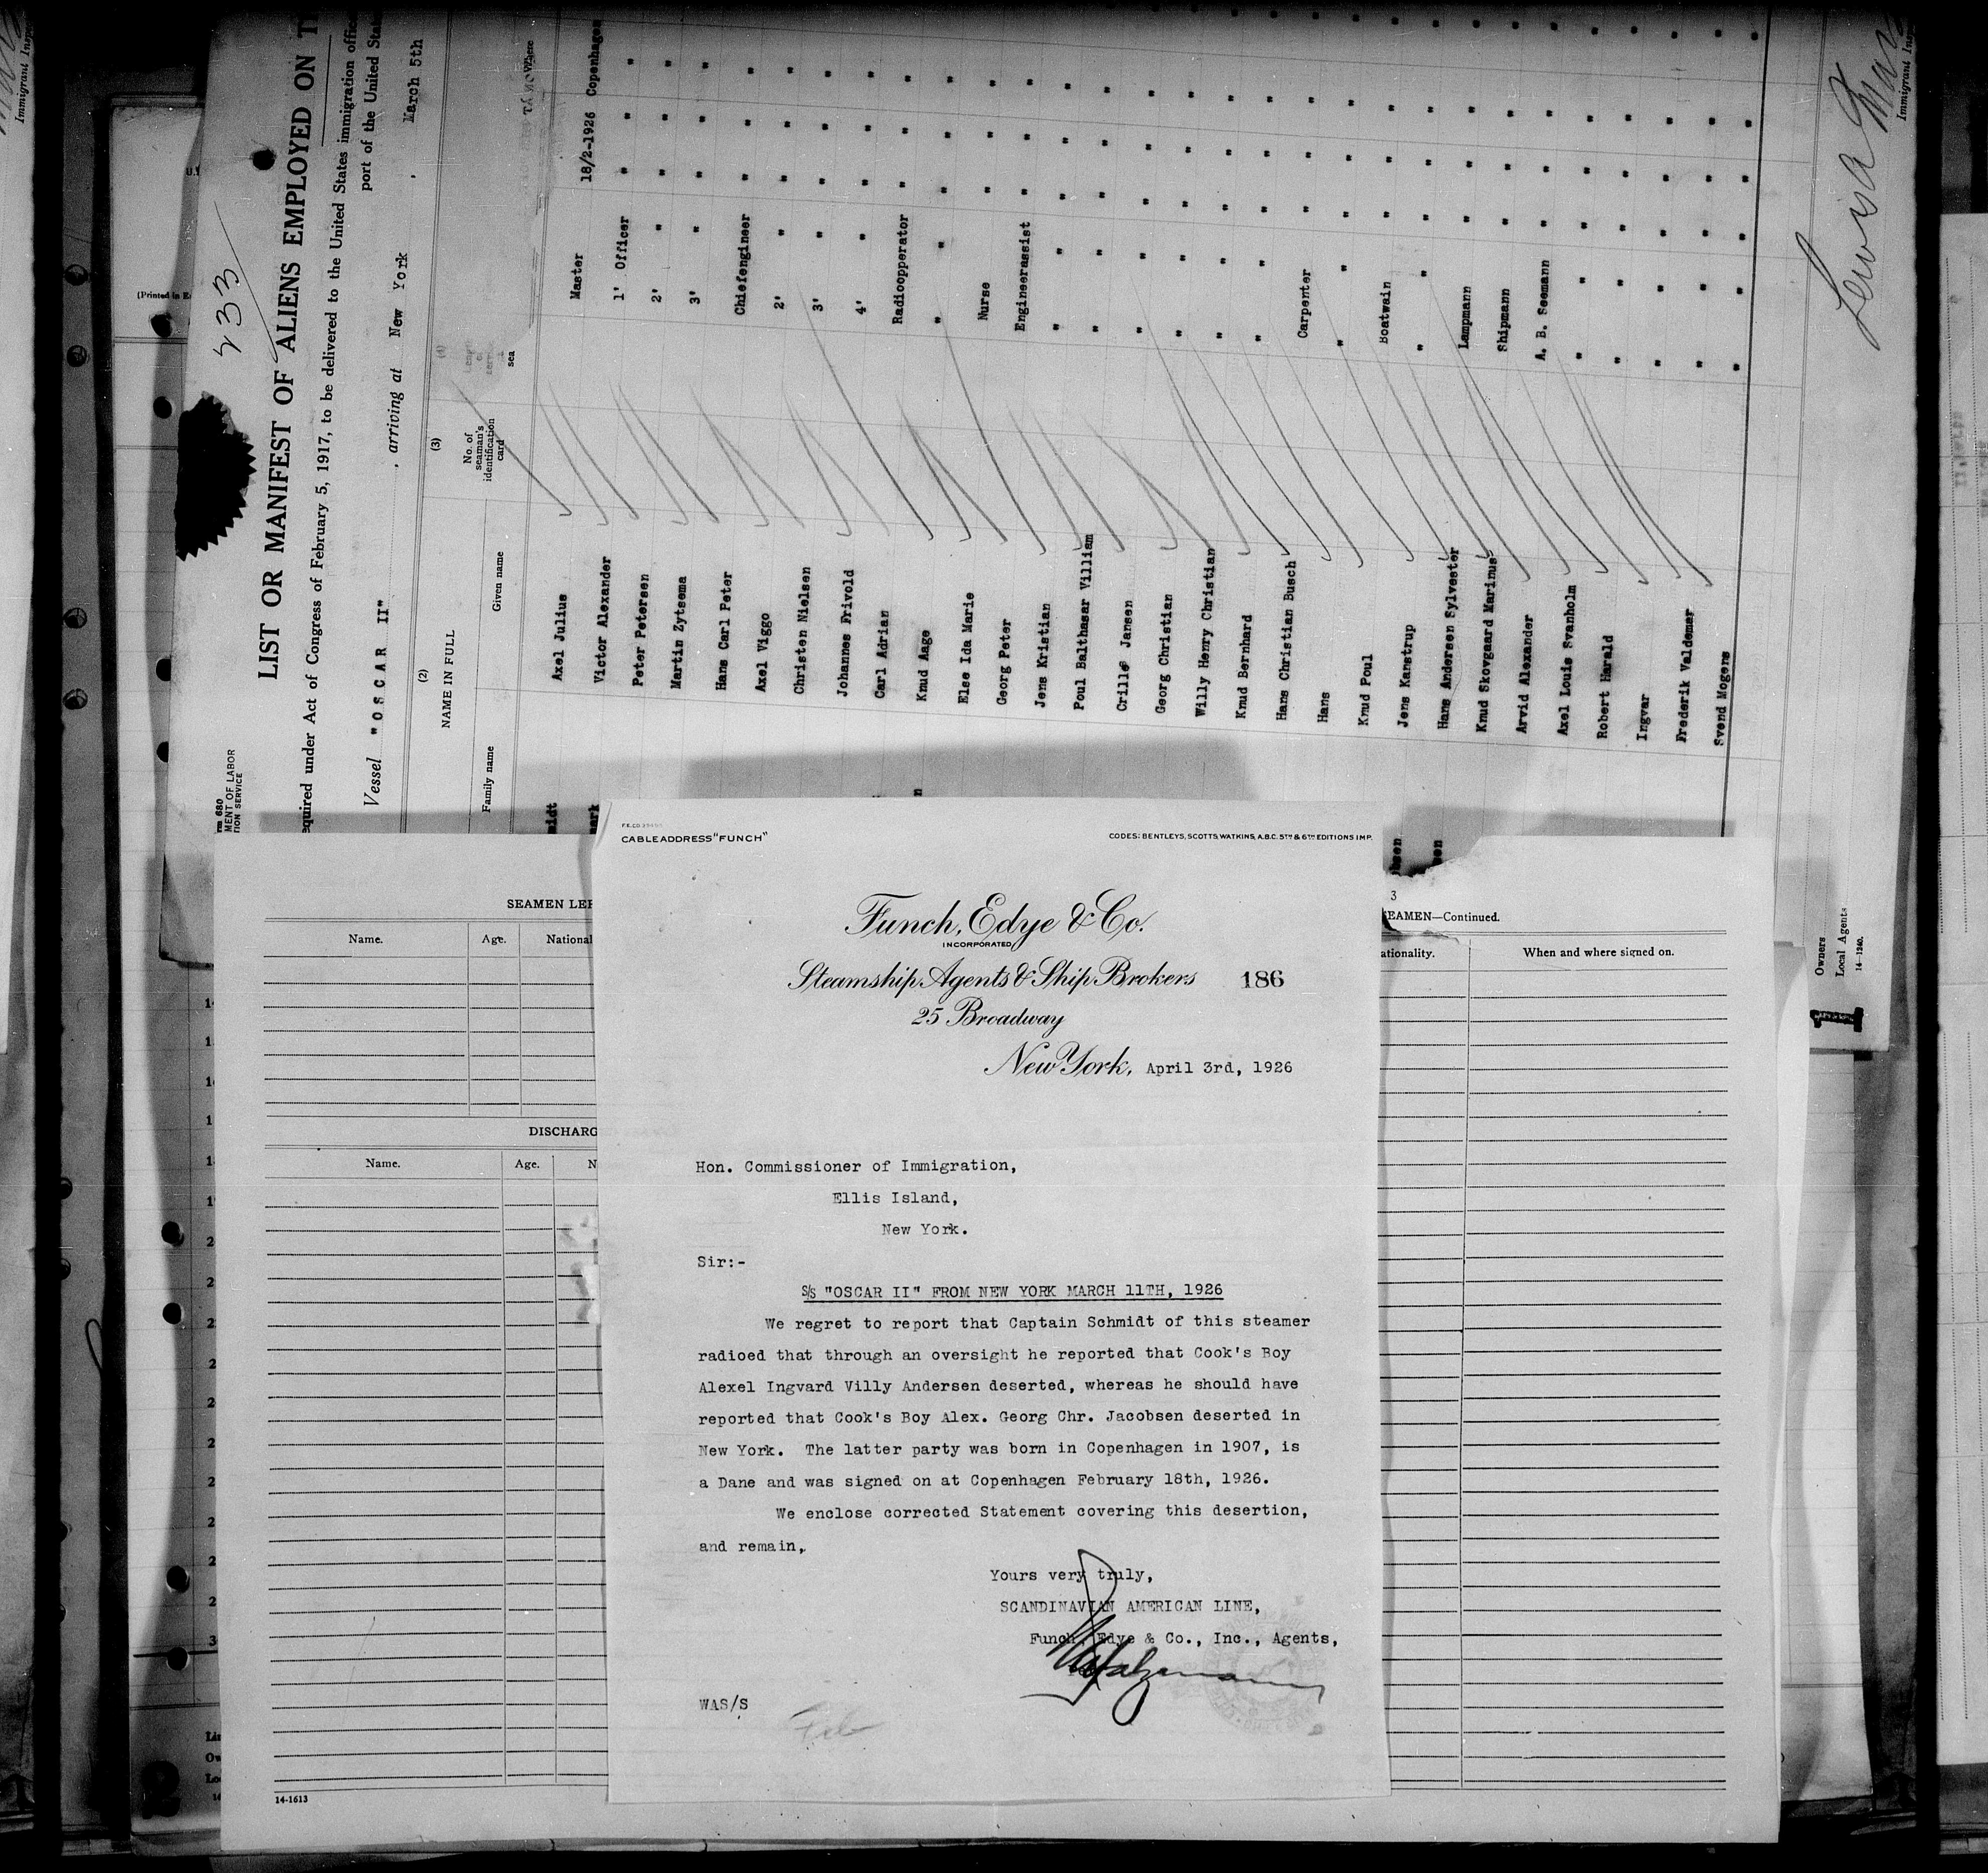 233
LIST OR MANIFEST OF ALIENS EMPLOYED ON T
equired under Act of Congress of February 5, 1917, to be delivered to the United States immigration offic
port of the United Stat
Vessel "OSCAR II" , arriving at New York , March 5th
(2) (3) (4)
NAME IN FULL
No. of seaman's identification card
sea
Family name Given name
Axel Julius Master 18/2-1926 Copenhagen
Victor Alexander 1' Officer " " "
Peter Petersen 2' " " " "
Martin Zytsema 3' " " " "
Hans Carl Peter Chiefengineer " " "
Axel Viggo 2' " " " "
Christen Nielsen 3' " " " "
Johannes Frivold 4' " " " "
Carl Adrian Radioopperator " " "
Knud Aage " " " " "
Else Ida Marie Nurse " " "
Georg Peter Engineerassist " " "
Jens Kristian " " " " "
Poul Balthasar Villiam " " " " "
Crille Jansen " " " " "
Georg Christian " " " " "
Willy Henry Christian " " " " "
Knud Bernhard " " " " "
Hans Christian Busch Carpenter " " "
Hans " " " " "
Knud Poul Boatwain " " "
Jens Kanstrup " " " " "
Hans Andersen Sylvester Lampmann " " "
Knud Skovgaard Marinus Shipmann " " "
Arvid Alexander A. B. Seemann " " "
Axel Louis Svanholm " " " " "
Robert Harald " " " " "
Ingvar " " " " "
Frederik Valdemar " " " " "
Svend Mogens " " " " "
Immigrant Insp
Owners
Local Agents
14-1240
1
CABLE ADDRESS "FUNCH"
CODES: BENTLEYS, SCOTTS, WATKINS, A.B.C. 5TH & 6TH EDITIONS IMP.
Funch, Edye & Co.
INCORPORATED
Steamship Agents & Ship Brokers 186
25 Broadway
New York, April 3rd, 1926
Hon. Commissioner of Immigration,
Ellis Island,
New York.
Sir:-
S/S "OSCAR II" FROM NEW YORK MARCH 11TH, 1926
We regret to report that Captain Schmidt of this steamer
radioed that through an oversight he reported that Cook's Boy
Alexel Ingvard Villy Andersen deserted, whereas he should have
reported that Cook's Boy Alex. Georg Chr. Jacobsen deserted in
New York. The latter party was born in Copenhagen in 1907, is
a Dane and was signed on at Copenhagen February 18th, 1926.
We enclose corrected Statement covering this desertion,
and remain,
Yours very truly,
SCANDINAVIAN AMERICAN LINE,
Funch, Edye & Co., Inc., Agents,
WAS/S
SEAMEN LEF
Name. Age. National
DISCHARG
Name. Age. N
14-1613
3
EAMEN—Continued.
ationality. When and where signed on.
2